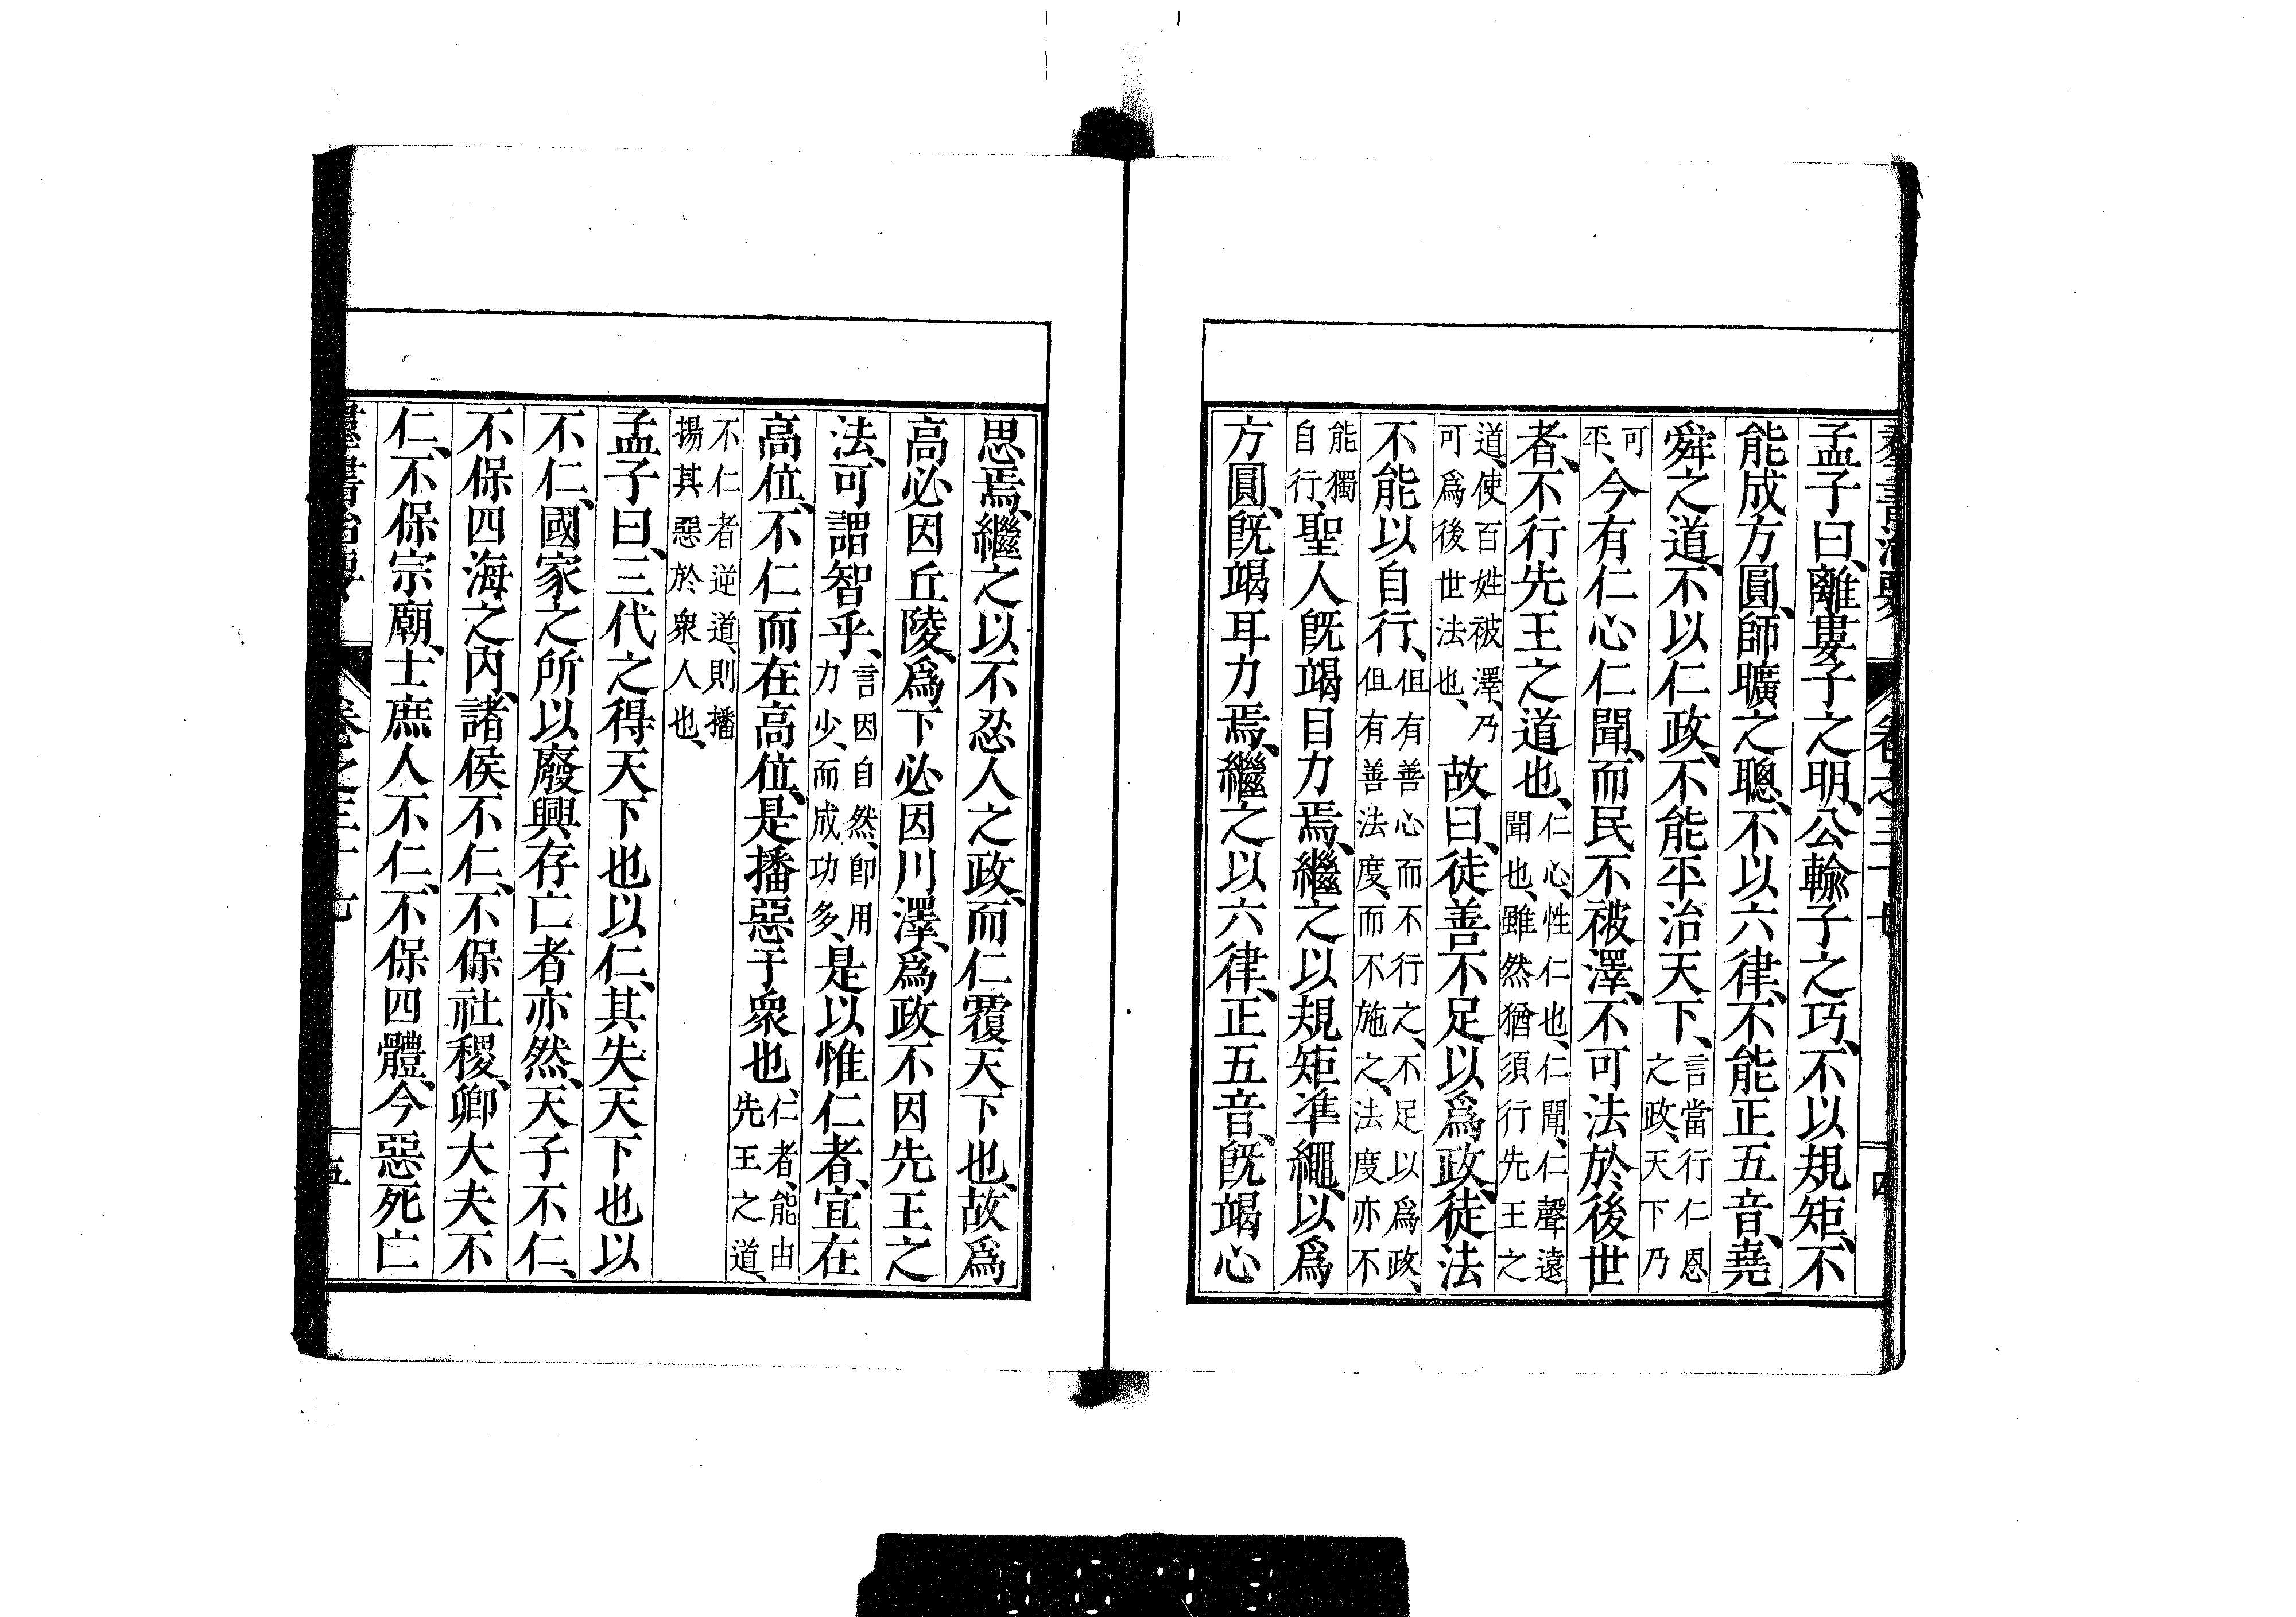 羣書治要 卷之三十七 四
孟子曰、離婁子之明、公輸子之巧、不以規矩、不
能成方圓、師曠之聰、不以六律、不能正五音、堯
舜之道、不以仁政、不能平治天下、言當行仁恩之政、天下乃
可平、今有仁心仁聞、而民不被澤、不可法於後世
者、不行先王之道也、仁心、性仁也、仁聞、仁聲遠聞也、雖然猶須行先王之
道、使百姓被澤、乃可爲後世法也、故曰、徒善不足以爲政、徒法
不能以自行、但有善心而不行之、不足以爲政、但有善法度、而不施之、法度亦不
能獨自行、聖人既竭目力焉、繼之以規矩準繩、以爲
方圓、既竭耳力焉、繼之以六律、正五音、既竭心
思焉、繼之以不忍人之政、而仁覆天下也、故爲
高必因丘陵、爲下必因川澤、爲政不因先王之
法、可謂智乎、言因自然、即用力少、而成功多、是以惟仁者、宜在
高位、不仁而在高位、是播惡于衆也、仁者、能由先王之道、
不仁者逆道、則播揚其惡於衆人也、
孟子曰、三代之得天下也以仁、其失天下也以
不仁、國家之所以廢興存亡者亦然、天子不仁、
不保四海之內、諸侯不仁、不保社稷、卿大夫不
仁、不保宗廟、士庶人不仁、不保四體、今惡死亡
羣書治要 卷之三十七 五